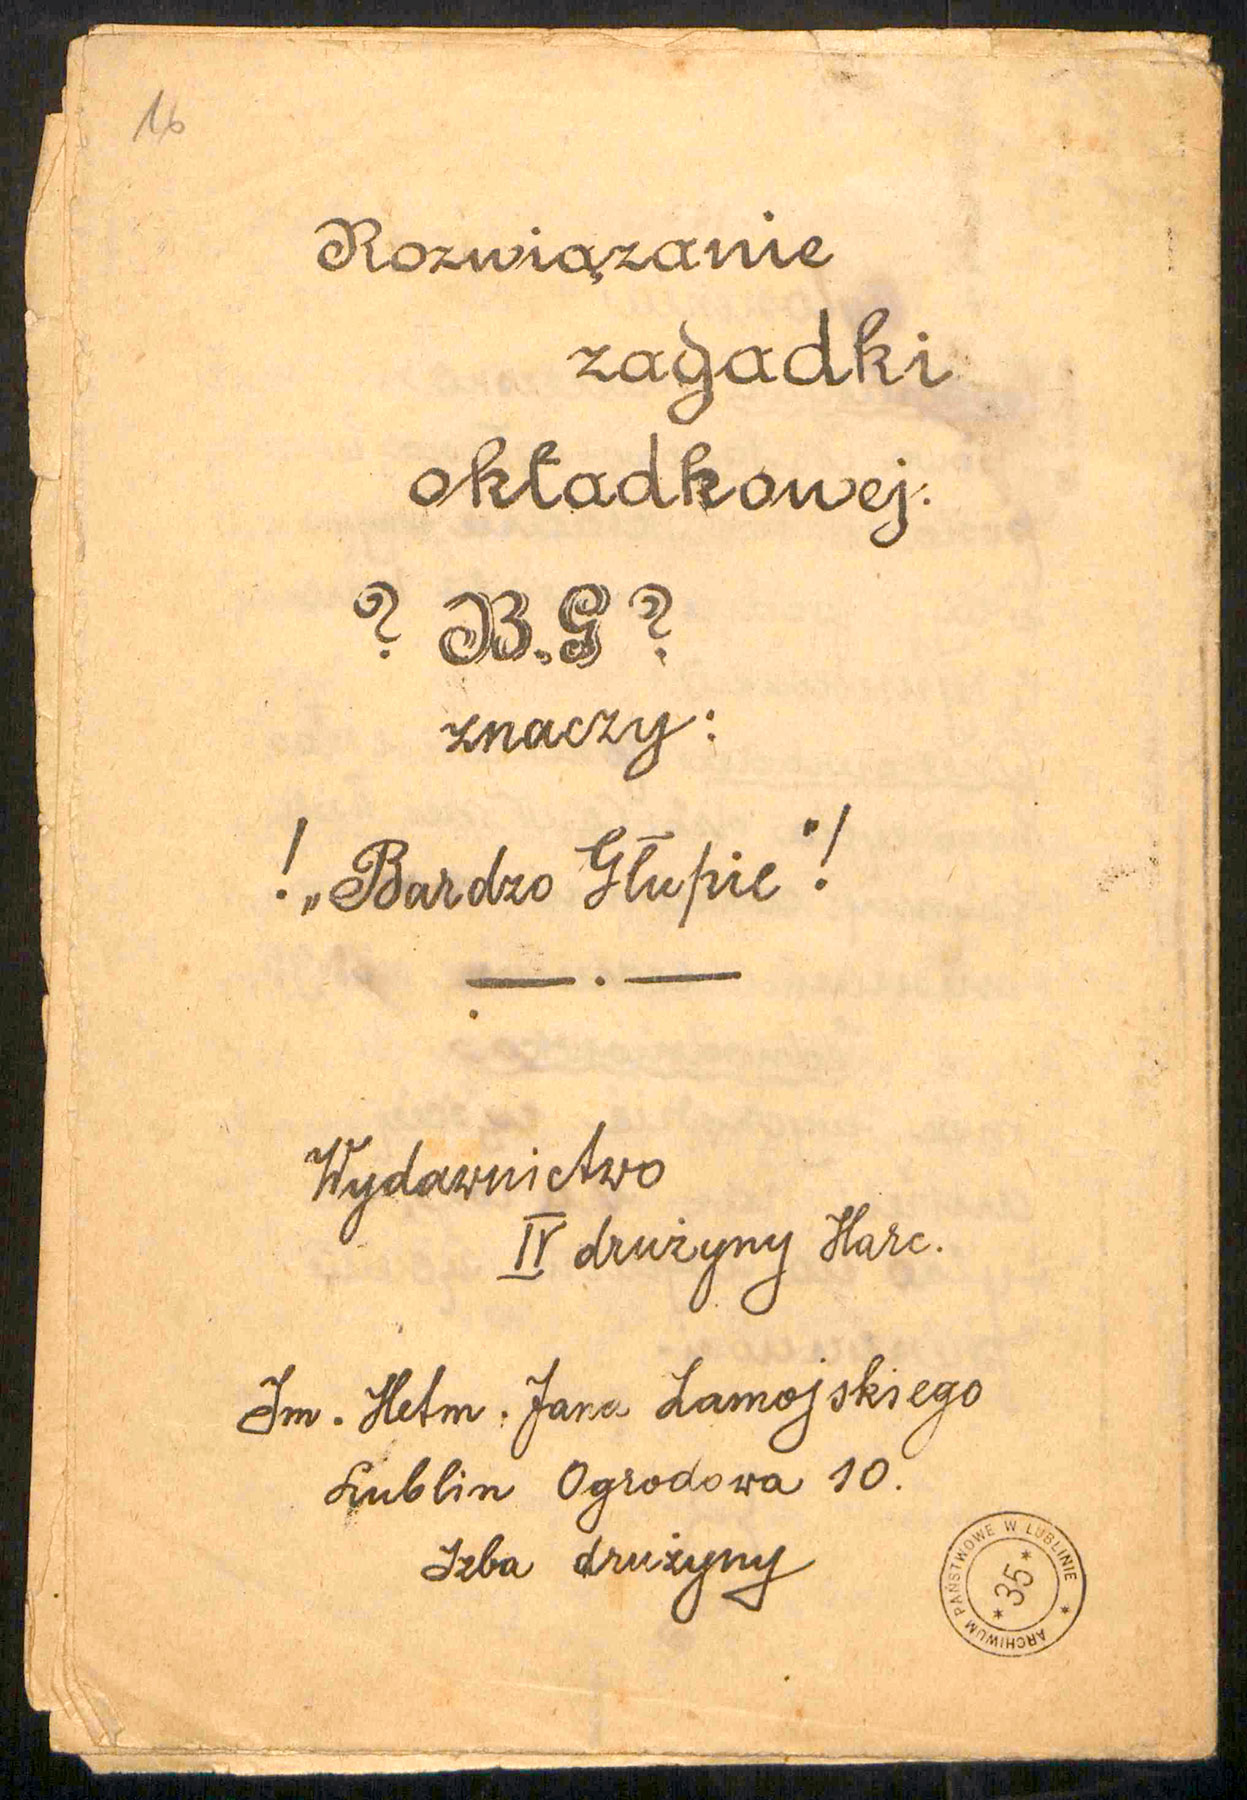 16
Rozwiązanie
zagadki
okładkowej:
? B.G ?
znaczy:
! „Bardzo Głupie" !
Wydawnictwo
IV drużyny Harc.
Im. Hetm. Jana Zamojskiego
Lublin Ogrodowa 10.
Izba drużyny
ARCHIWUM PAŃSTWOWE W LUBLINIE * 35 *